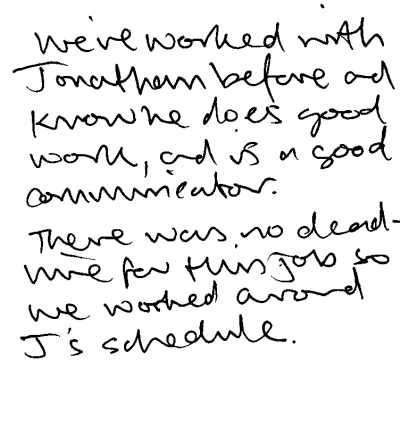 We've worked with
Jonathan before and
know he does good
work, and is a good
communicator.
There was no dead-
line for this job so
we worked around
J's schedule.